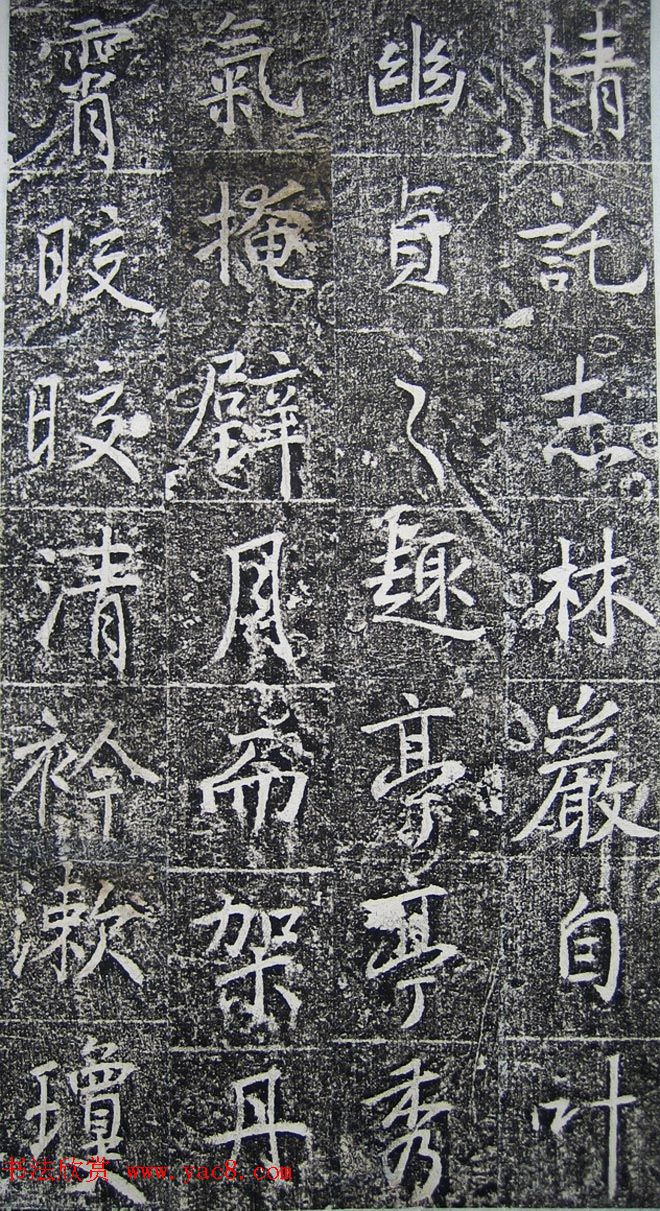 情託志林巖自叶
幽貞之趣亭亭秀
氣掩璧月而架丹
霄皎皎清衿漱瓊
书法欣赏 www.yac8.com